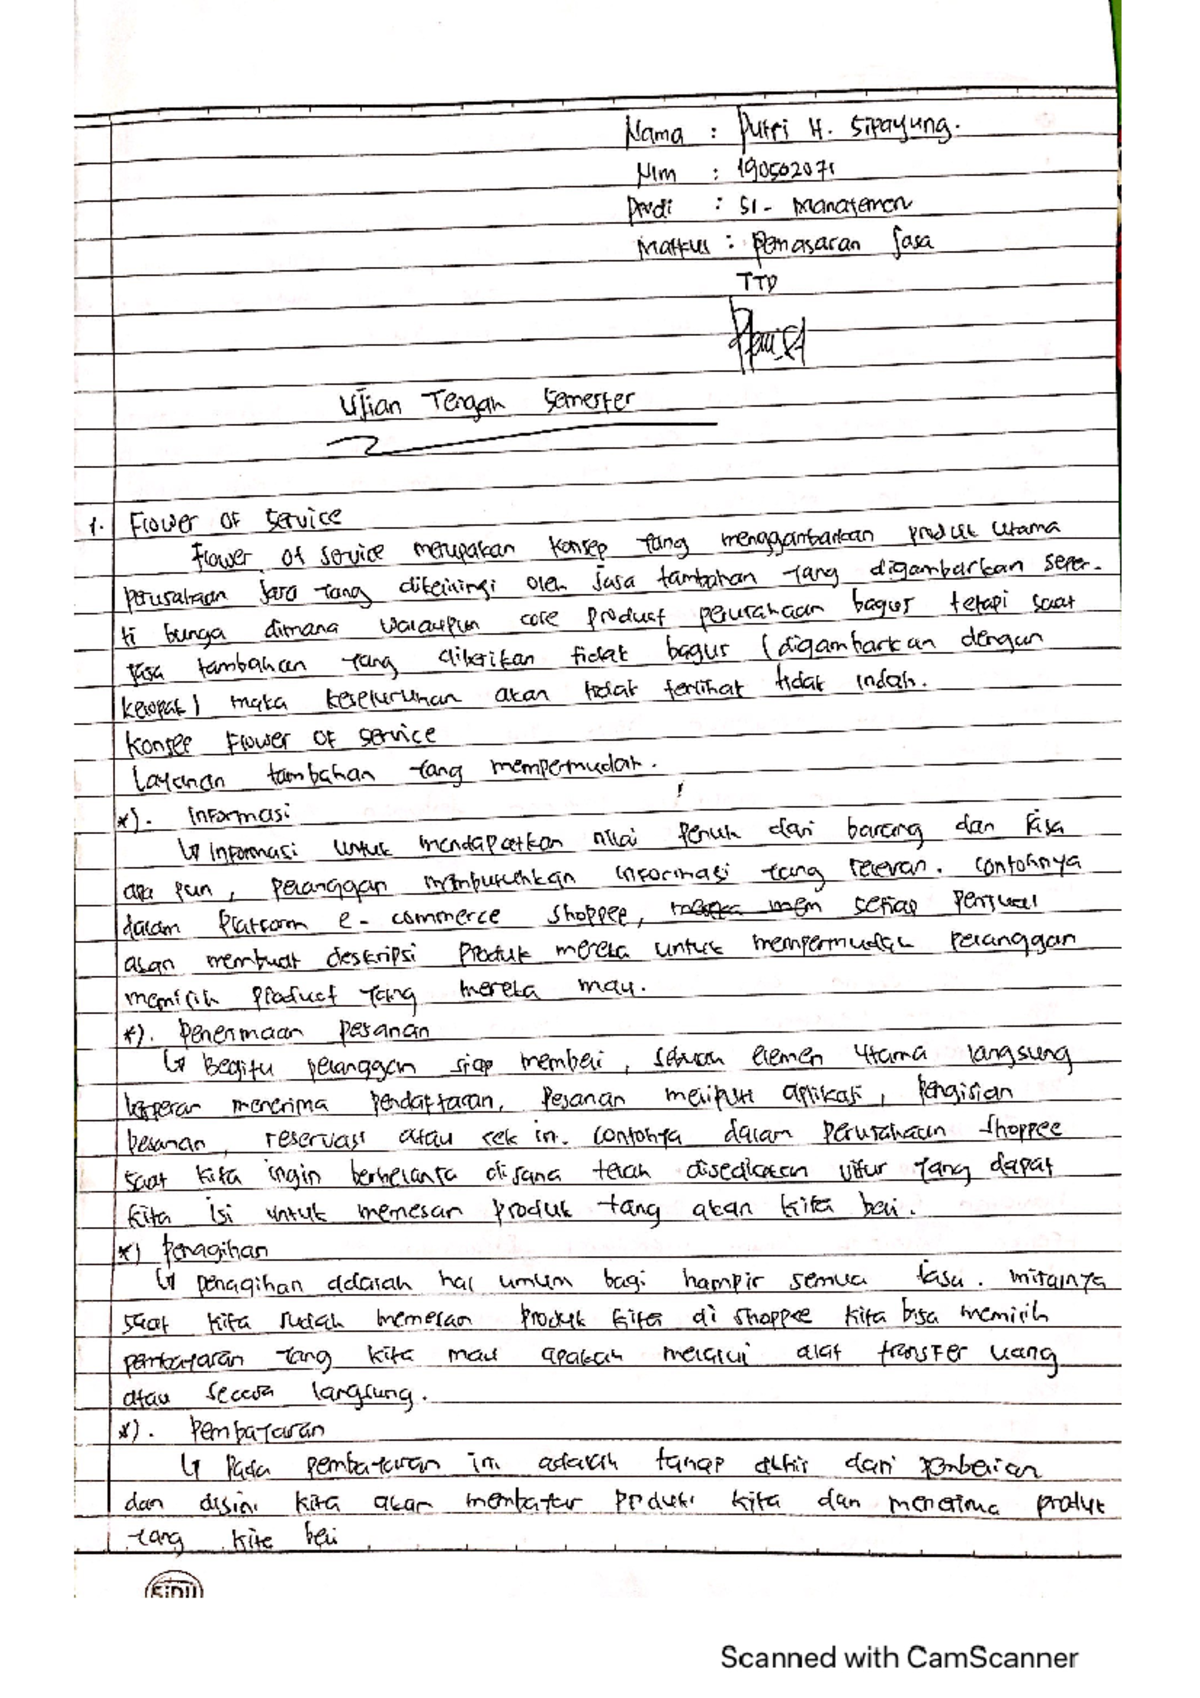 Nama : Putri H. Sipayung.
Nim : 190502071
Prodi : S1 - Manajemen
Matkul : Pemasaran Jasa
TTD
Ujian Tengah Semester
1. Flower of Service
Flower of service merupakan konsep yang menggambarkan produk utama
perusahaan jasa yang dikelilingi oleh jasa tambahan yang digambarkan seper-
ti bunga dimana walaupun core product perusahaan bagus tetapi saat
jasa tambahan yang diberikan tidak bagus (digambarkan dengan
kelopak) maka keseluruhan akan tidak terlihat tidak indah.
Konsep Flower of service
Layanan tambahan yang mempermudah.
*). Informasi
↳ Informasi untuk mendapatkan nilai penuh dari barang dan jasa
apa pun, pelanggan membutuhkan informasi yang relevan. Contohnya
dalam Platform e-commerce shoppee, setiap penjual
akan membuat deskripsi produk mereka untuk mempermudah pelanggan
memilih product yang mereka mau.
*). Penerimaan pesanan
↳ Begitu pelanggan siap membeli, sebuah elemen utama langsung
berperan menerima pendaftaran, pesanan meliputi aplikasi, pengisian
pesanan, reservasi atau cek in. Contohya dalam perusahaan shoppee
saat kita ingin berbelanja disana telah disediakan vitur yang dapat
kita isi untuk memesan produk yang akan kita beli.
*) Penagihan
↳ penagihan adalah hal umum bagi hampir semua jasa. misalnya
saat kita sudah memesan produk kita di shoppee kita bisa memilih
pembayaran yang kita mau apakah melalui alat transfer uang
atau secara langsung.
*). Pembayaran
↳ Pada pembayaran ini adalah tahap akhir dari pembelian
dan disini kita akan membayar produk kita dan menerima produk
yang kita beli
SIDU
Scanned with CamScanner